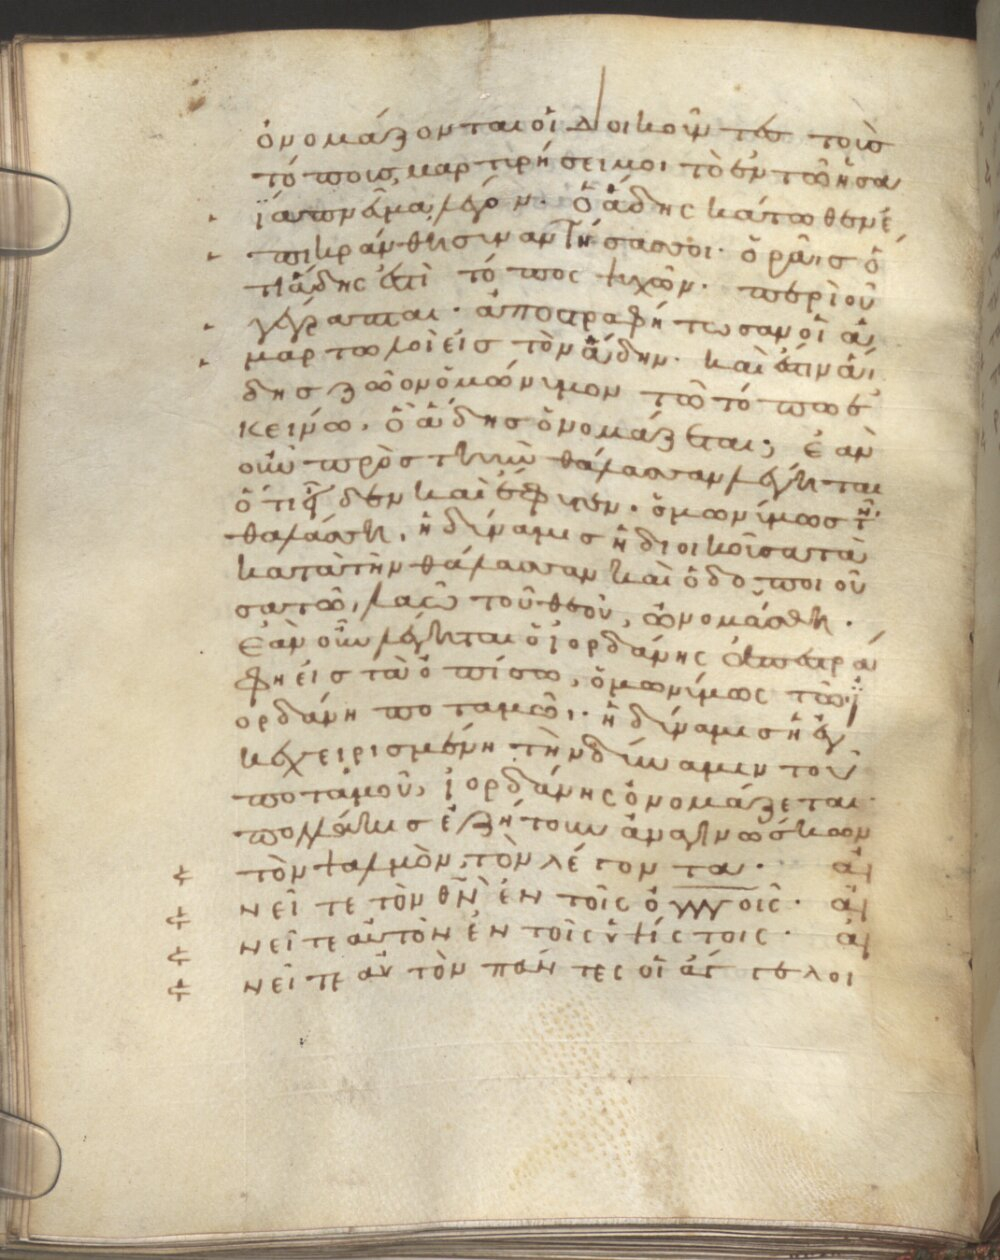 ὀνομάζονται οἱ διοικοῦντες τοῖς
τόποις, μαρτυρήσει μοι τὸ ἐν τῷ ἡσα
ΐα πνεῦμα λέγον· ὁ ἅδης κάτωθεν ἐ
πικράνθη συναντήσας σοι· ὁρᾷς ὅ
τι ἅδης ἐστὶ τόπος ψυχῶν· περὶ οὗ
γέγραπται· ἀποστραφήτωσαν οἱ ἁ
μαρτωλοὶ εἰς τὸν ἅδην· καὶ ἔστιν ἅ
δης ζῶον ὁμώνυμον τῷ τόπῳ ἐ
κείνῳ, ὁ ἅδης ὀνομάζεται; ἐὰν
οὖν πρὸς τὴν θάλασσαν λέγηται
ὅτι εἶδεν καὶ ἔφυγεν· ὁμωνύμως τῇ
θαλάσσῃ, ἡ δύναμις ἡ διοικοῦσα τὰ
κατὰ τὴν θάλασσαν καὶ ὁδοποιοῦ
σα τῷ λαῷ τοῦ θεοῦ, ὠνομάσθη·
ἐὰν οὖν λέγηται ὁ ἰορδάνης ἐστρά
φη εἰς τὰ ὀπίσω, ὁμωνύμως τῷ ἰ
ορδάνῃ ποταμῷ· ἡ δύναμις ἡ ἐγ
κεχειρισμένη τὴν δύναμιν τοῦ
ποταμοῦ, ἰορδάνης ὀνομάζεται·
πολλάκις ἐζήτουν ἀναγινώσκων
τὸν ψαλμὸν, τὸν λέγοντα· αἰ
νεῖτε τὸν θν ἐν τοῖς οὐνοις· αἰ
νεῖτε αὐτὸν ἐν τοῖς ὑψίστοις· αἰ
νεῖτε αὐτὸν πάντες οἱ ἄγγελοι